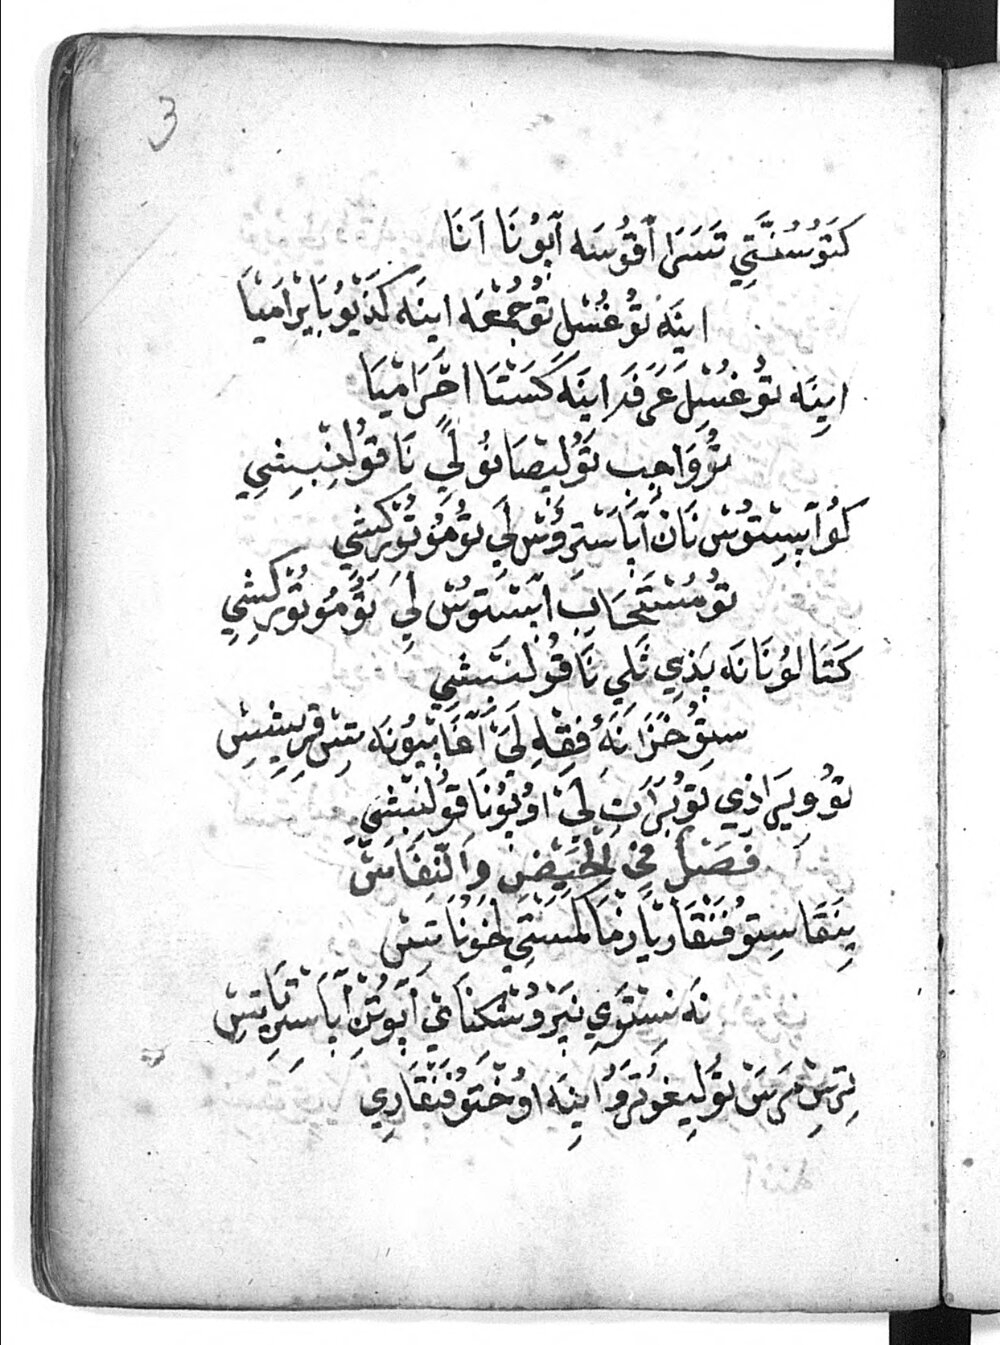 3
كَتَوُسُنَّتِي تَسَرَا اٰقوُسَه اٰبوُنَا اَنَا
اينَه توُغُسْلِ توُجُمْعَه اينَه كَذْيوُ بَايْرَامْيَا
اينَه توُغُسْلِ عَرَفَه اينَه كَسَتَا اخْرَامْيَا
توُوَاجِبِ توُليصَانوُ لَيْ نَا قوُلِنْبِسِي
كوُ اٰبِسِتوُسْ نَانْ اٰبَاسْتِرُوُسْ لَي توُمُوتوُرْكِسِي
توُمُسْتَحَابِ اٰبِسْتوُسْ لَيِ توُمُوتوُرْكِسِي
كَتَا لوُنَانَه بَذِي ثَلِي نَا قوُلِنْبِسِي
سِتوُ خَزَانَهٔ فِقْهِ لَيْ اٰغَابِيوُنَه تِسْ قِرِيسِسْ
توُوِيرَاذِي توُبَرَاتِ لَيْ اوُبوُنَا قوُلِنْبِسِي
فَصْلٌ فِي الْحَيْضِ وَالنِّفَاسِ
يِنَقَا سِتوُفَنْقَارْيَا رْمَا كَمَسْتِي خوُنَا تِسْ
نَه نِسْتَوِي نِيَرْ وُسْكِنَا كَي اٰبوُتِنْ اٰبَاسْتِرْيَاتِسْ
تِرِسْ مَرَسْ توُلِيغوُتَرُوُ اينَه اوُخْتوُفَنْقَارِي